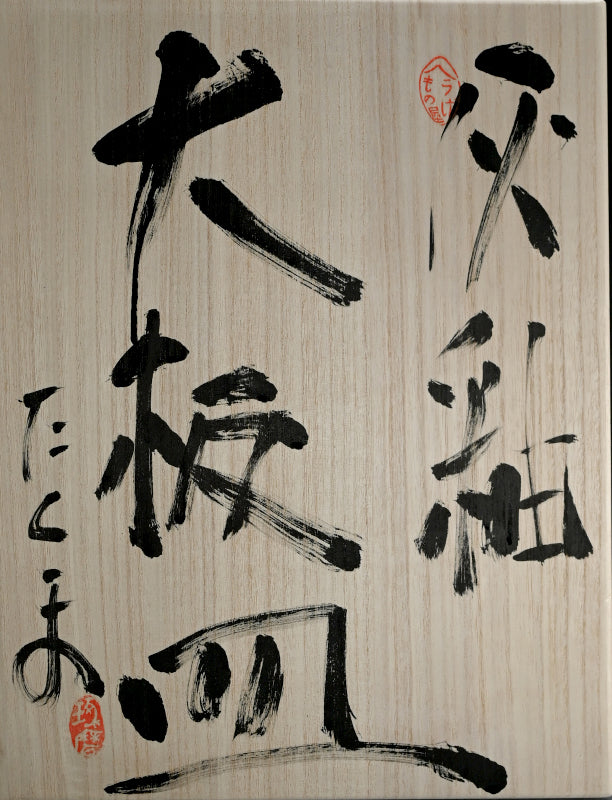 灰釉
へうげもの
大板皿
たくま
琢磨